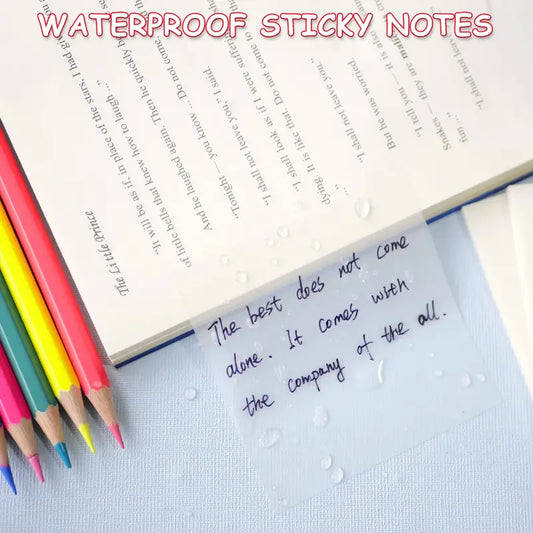 WATERPROOF STICKY NOTES
The Little Prince
"It will be as if, in place of the stars, I had given you
of little bells that knew how to laugh ..."
And he laughed again. Then he quickly b
"Tonight — you know ... Do not come,
"I shall not leave you," I said.
"I shall look as if I were suffering
dying. It is like that. Do not come
"I shall not leave you."
But he was worried.
"I tell you — it is also
Snakes — they are
fun ..."
"I shall not leave
The best does not come
alone. It comes with
the company of the all.